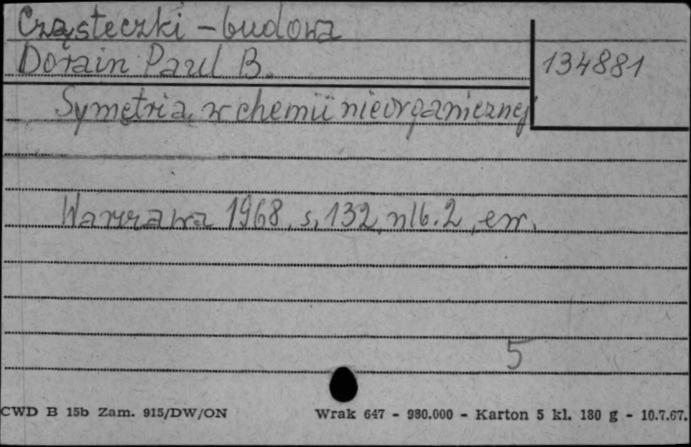 Cząsteczki - budowa
Dorain Paul B.
134881
Symetria w chemii nieorganicznej
Warszawa 1968, s. 132, nlb. 2, err.
5
CWD B 15b Zam. 915/DW/ON
Wrak 647 - 980.000 - Karton 5 kl. 180 g - 10.7.67.